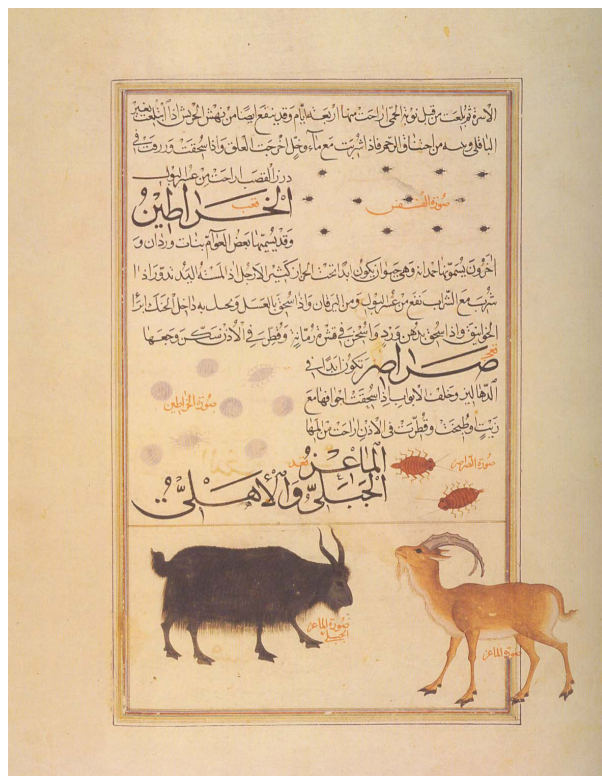 الاسرة ثم بلعت من قبل نوبة الحمى اراحت منها اربعة ايام وقد ينفع ايضا من نهش الحريش اذا ابتلعت بغير
الباقلى وينبه من اختناق الرحم فاذا اشربت مع ماء وخل اخرجت العلق واذا سحقت وزرقت في
درز القضيب اراحت من عسر البول
صورة الفسفس
الخراطين
وقد يسميها بعض العوام بنات وردان و
اخرون يسمونها حمدانة وهي حيوان يكون ابدا تحت الجرار كثير الارجل اذا لمسته اليد تدور اذا
شرب مع الشراب نفع من عسر البول ومن اليرقان واذا سحق بالعسل وتحل به داخل الحنك ابرأ
الخوانيق واذا سحق بدهن ورد واسخن في قشرة رمانة وقطر في الاذن سكن وجعها
صراصر
تكون ابدا في
الدهاليز وخلف الابواب اذا سحقت اجوافها مع
صورة الخراطين
زيت وطبخت وقطرت في الاذن اراحت من المها
الماعز
الجبلي والاهلي
صورة الماعز
الجبلي
صورة الماعز